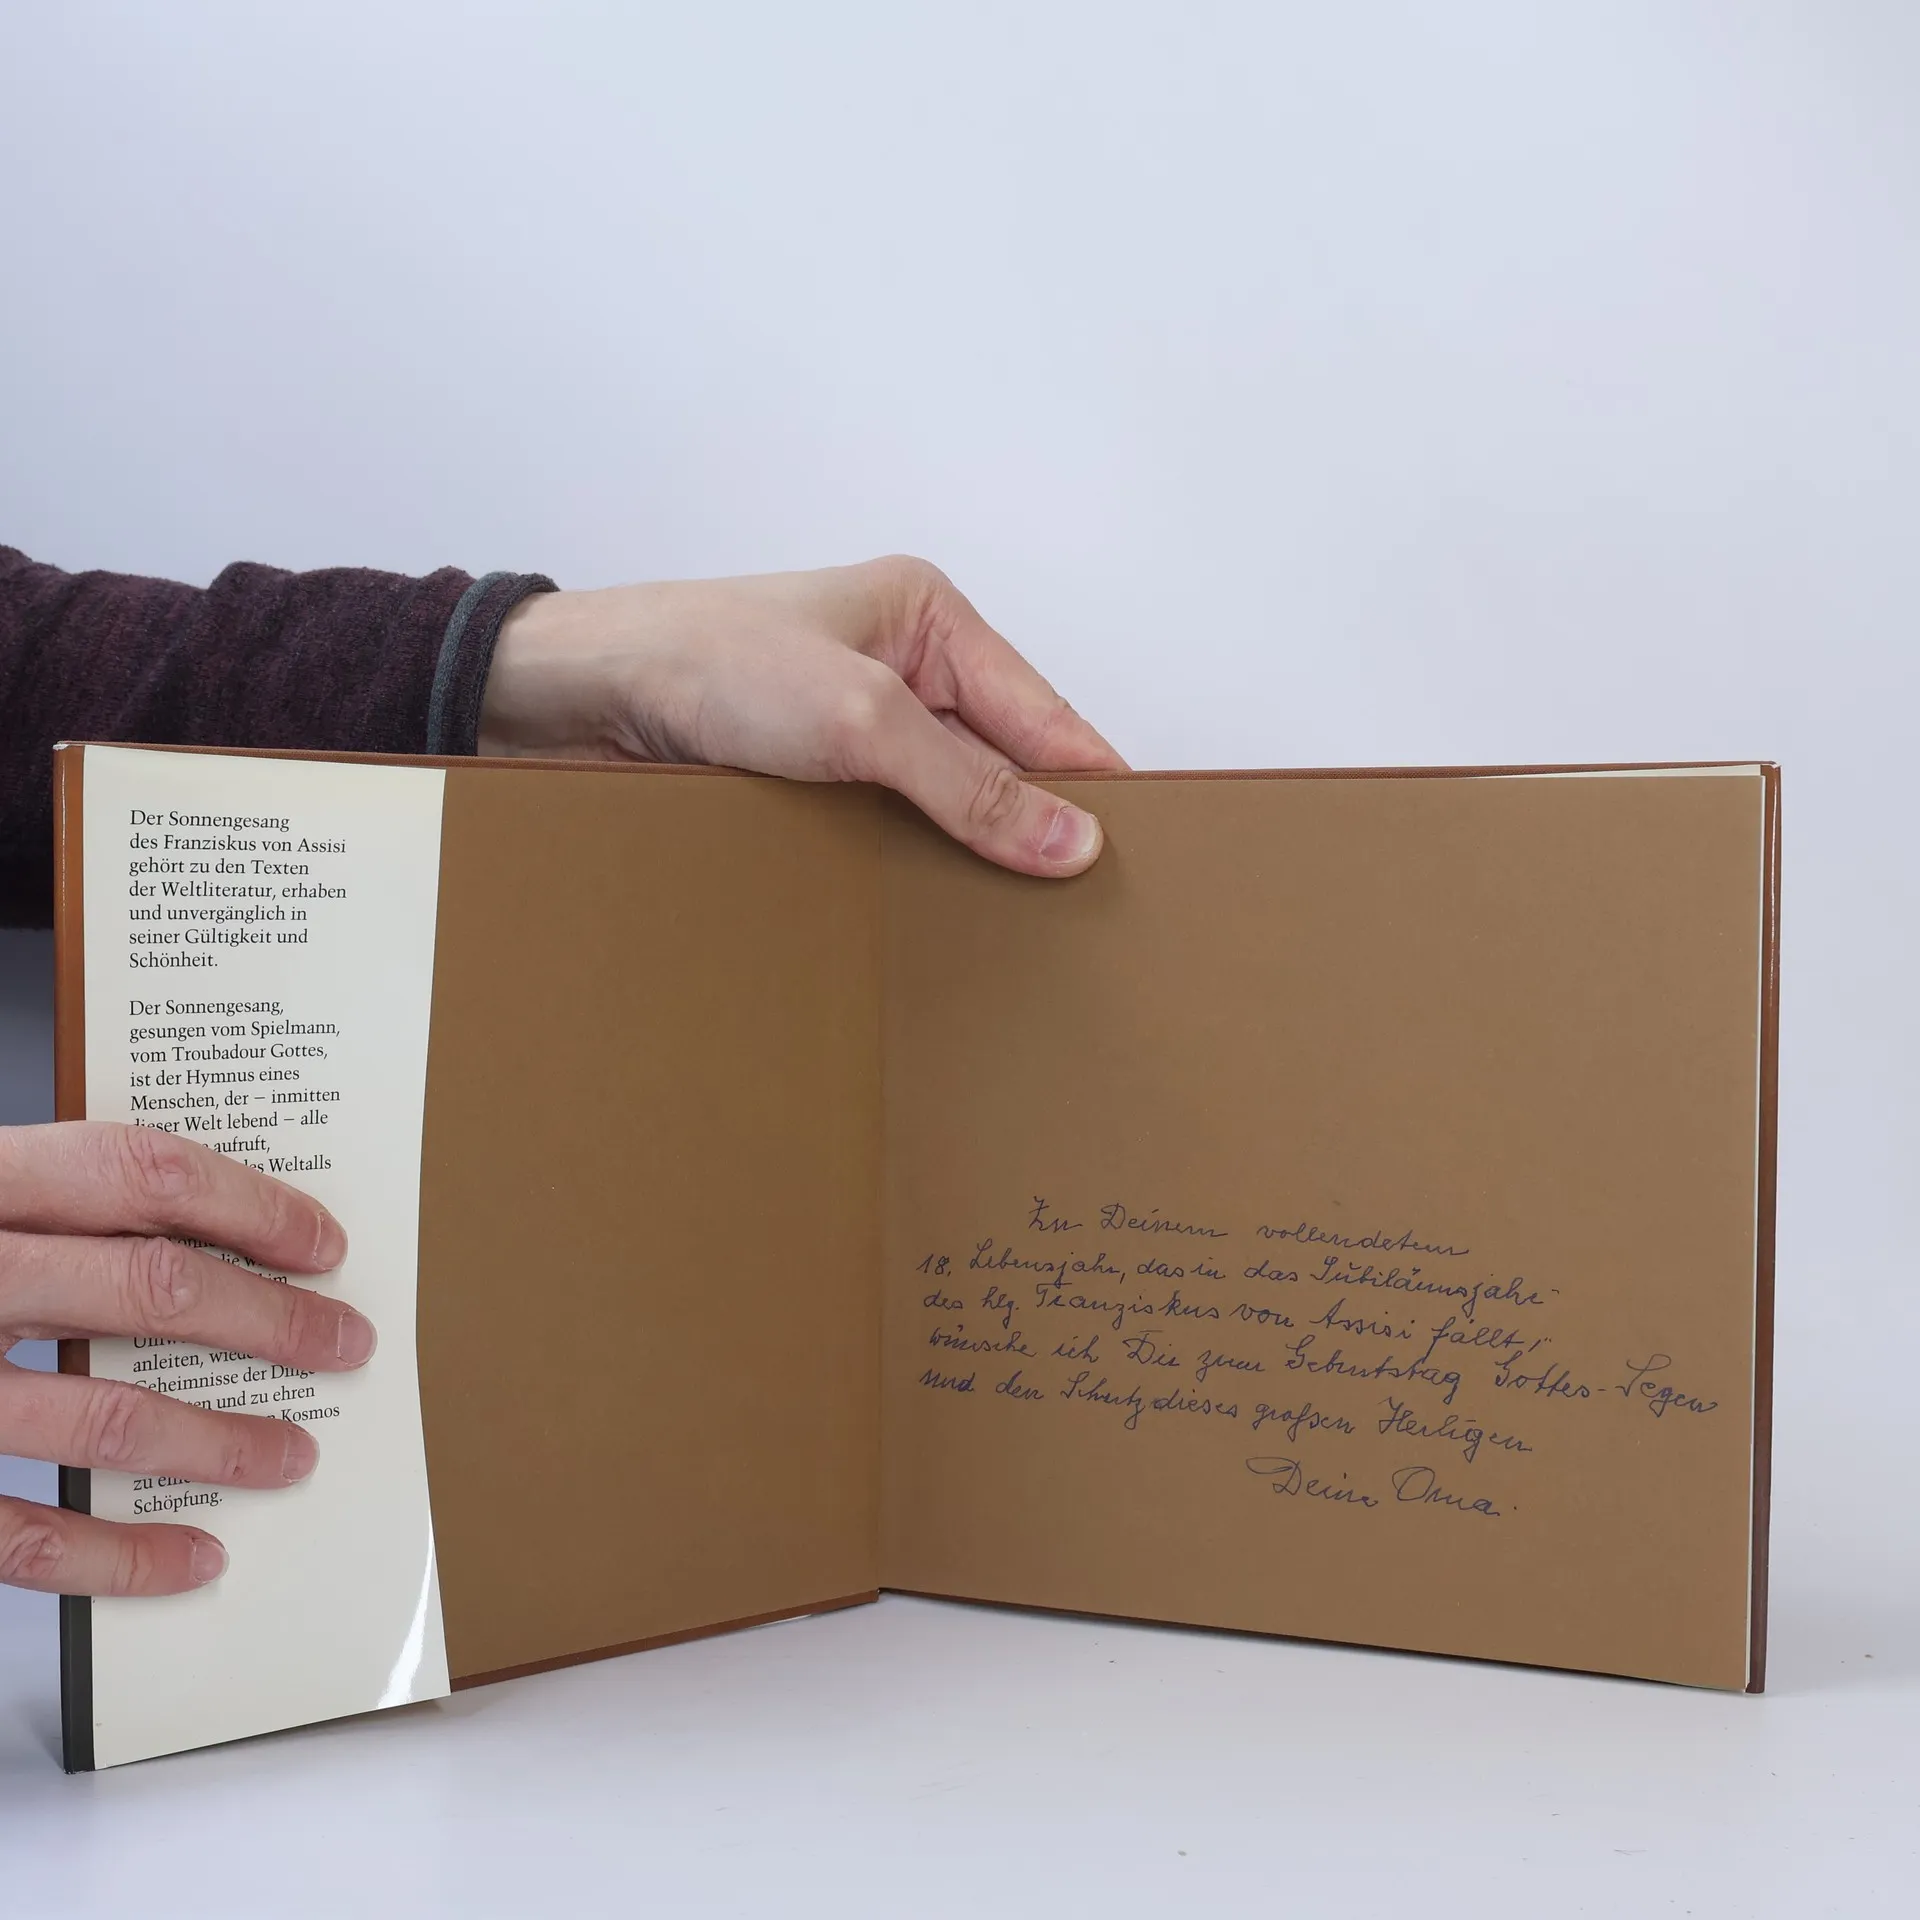 Der Sonnengesang
des Franziskus von Assisi
gehört zu den Texten
der Weltliteratur, erhaben
und unvergänglich in
seiner Gültigkeit und
Schönheit.
Der Sonnengesang,
gesungen vom Spielmann,
vom Troubadour Gottes,
ist der Hymnus eines
Menschen, der – inmitten
dieser Welt lebend – alle
aufruft,
Weltalls
anleiten,
Geheimnisse der Dinge
und zu ehren
Kosmos
zu
Schöpfung.
Zu Deinem vollendetem
18. Lebensjahr, das in das Jubiläumsjahr
des hlg. Franziskus von Assisi fällt,
wünsche ich Dir zum Geburtstag Gottes-Segen
und den Schutz dieses großen Heiligen
Deine Oma.